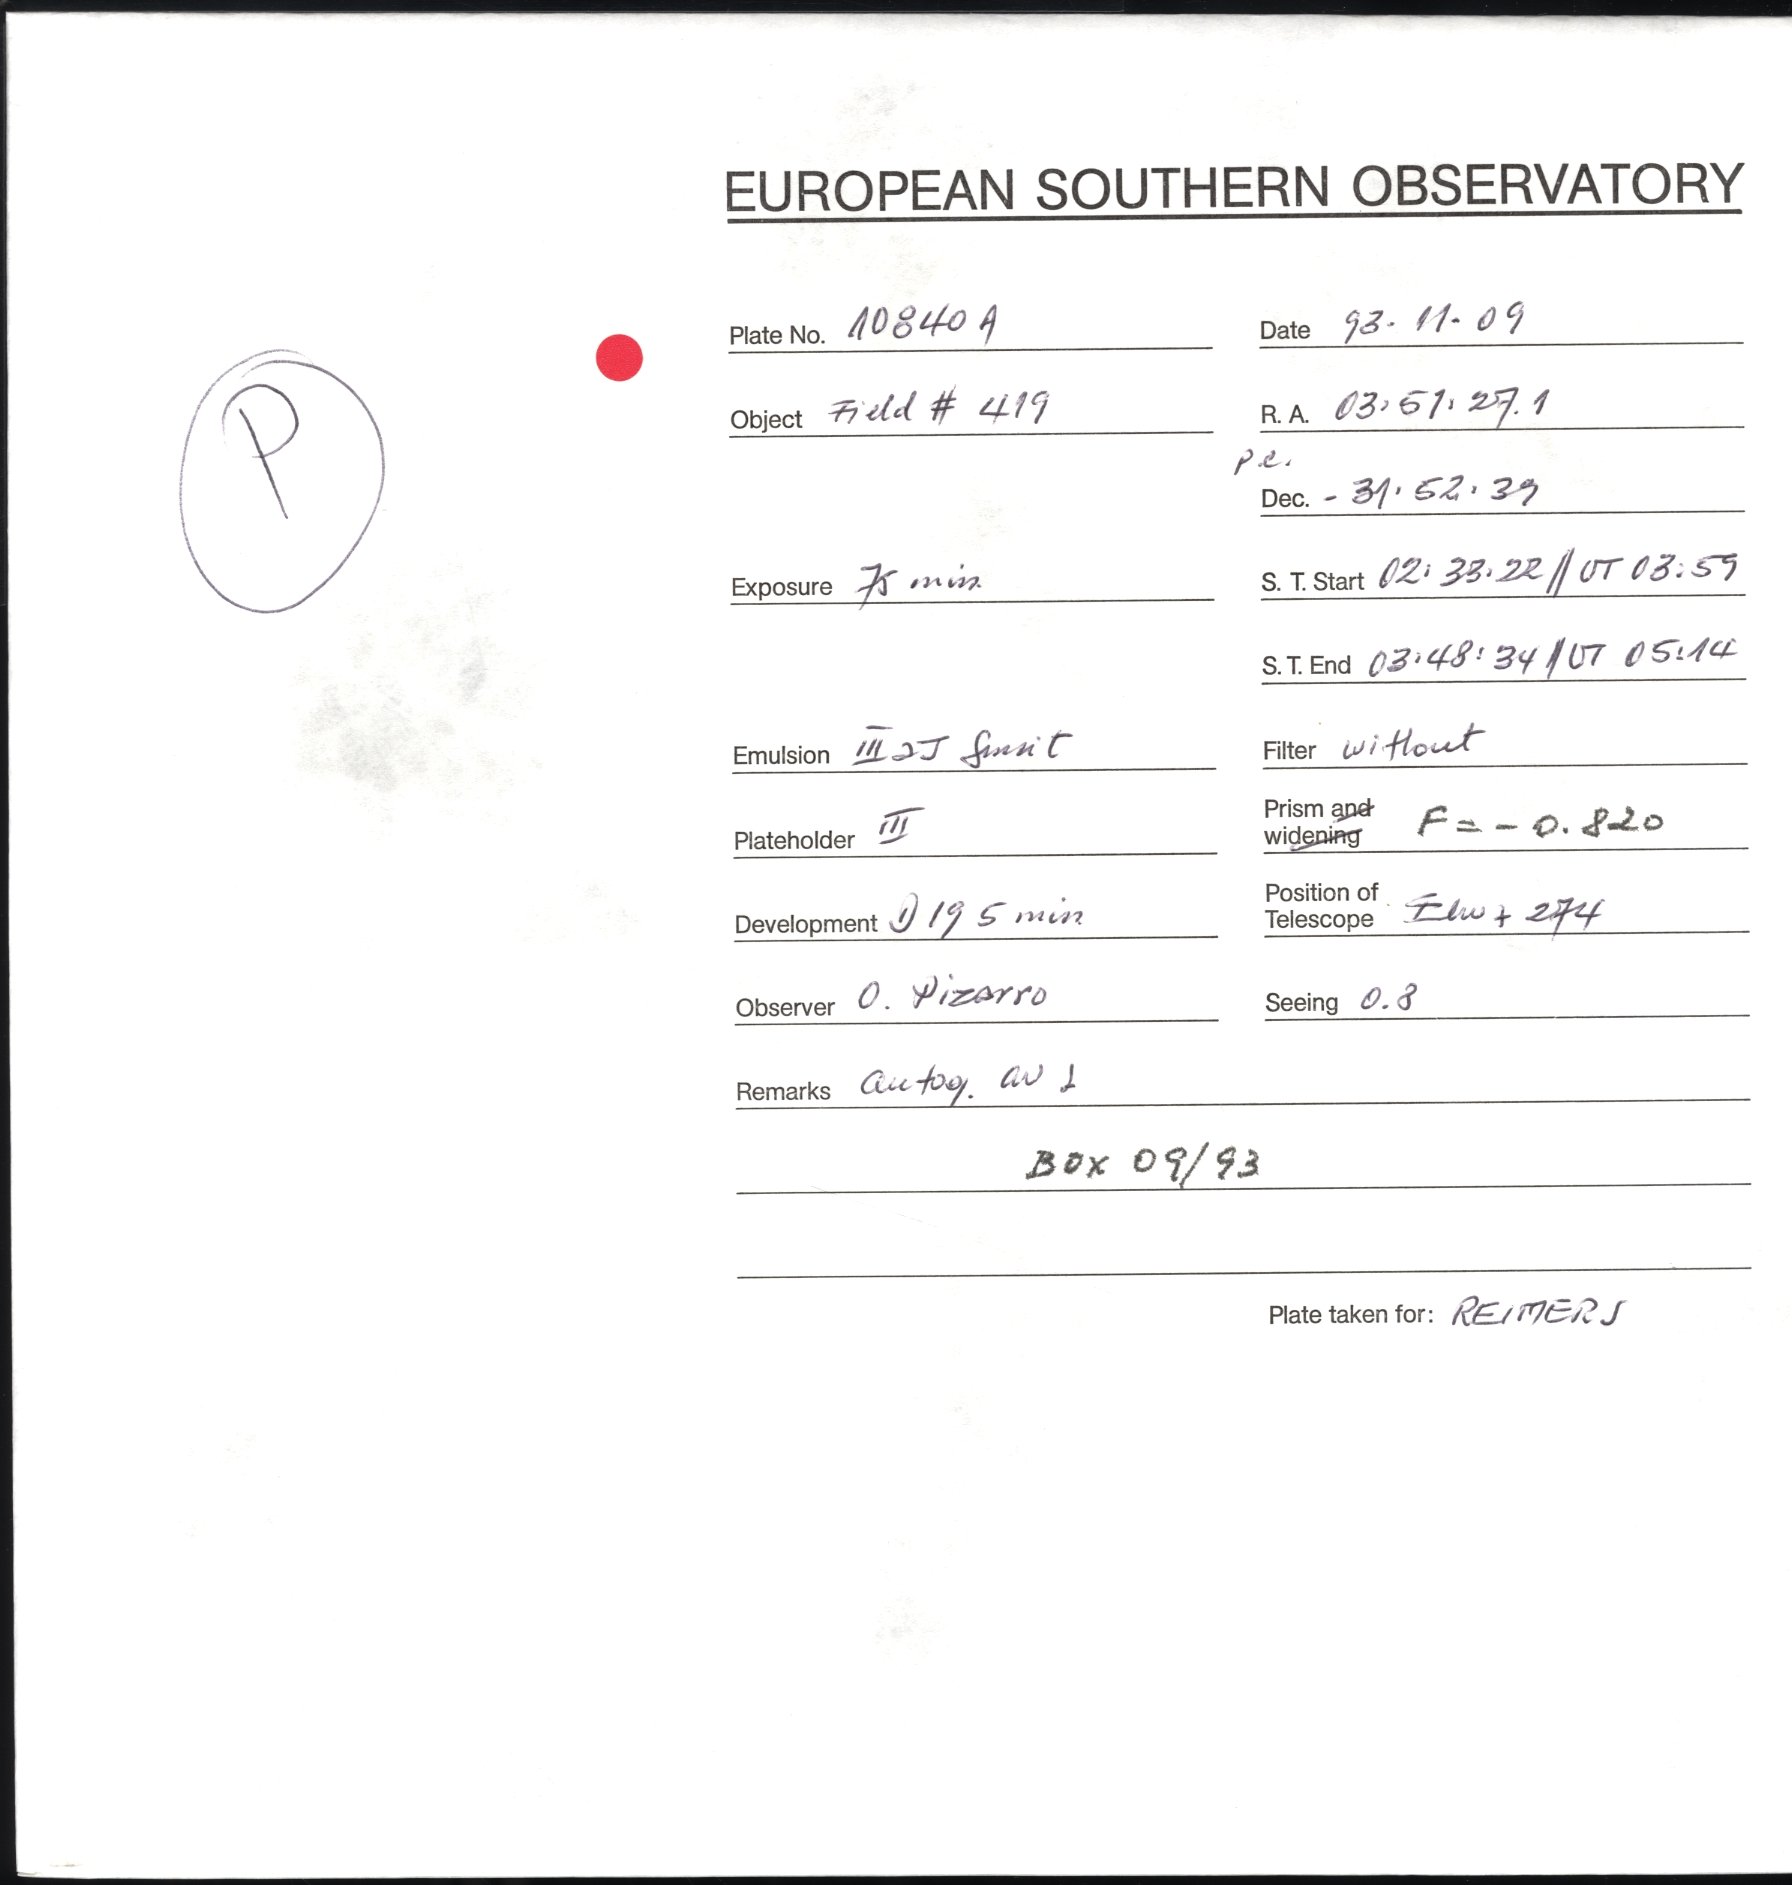 EUROPEAN SOUTHERN OBSERVATORY
Plate No. 10840 A
Date 93. 11. 09
P
Object Field # 419
R. A. 03:51:27.1
p.e.
Dec. - 31:52:39
Exposure 75 min
S. T. Start 02:33:22 // UT 03:59
S. T. End 03:48:34 // UT 05:14
Emulsion III aJ
Filter without
Plateholder III
Prism and widening F = - 0.820
Development D 19 5 min
Position of Telescope + 274
Observer O. Pizarro
Seeing 0.8
Remarks autog.
BOX 09/93
Plate taken for: REIMERS